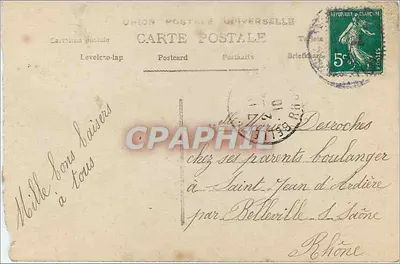 UNION POSTALE UNIVERSELLE
CARTE POSTALE
Levelező-lap Postcard Postkarte
RÉPUBLIQUE FRANÇAISE
5c
POSTES
CPAPHIL
Desroches
chez ses parents boulanger
à Saint Jean d'Ardière
par Belleville-s-Saône
Rhône
Mille bons baisers
à tous